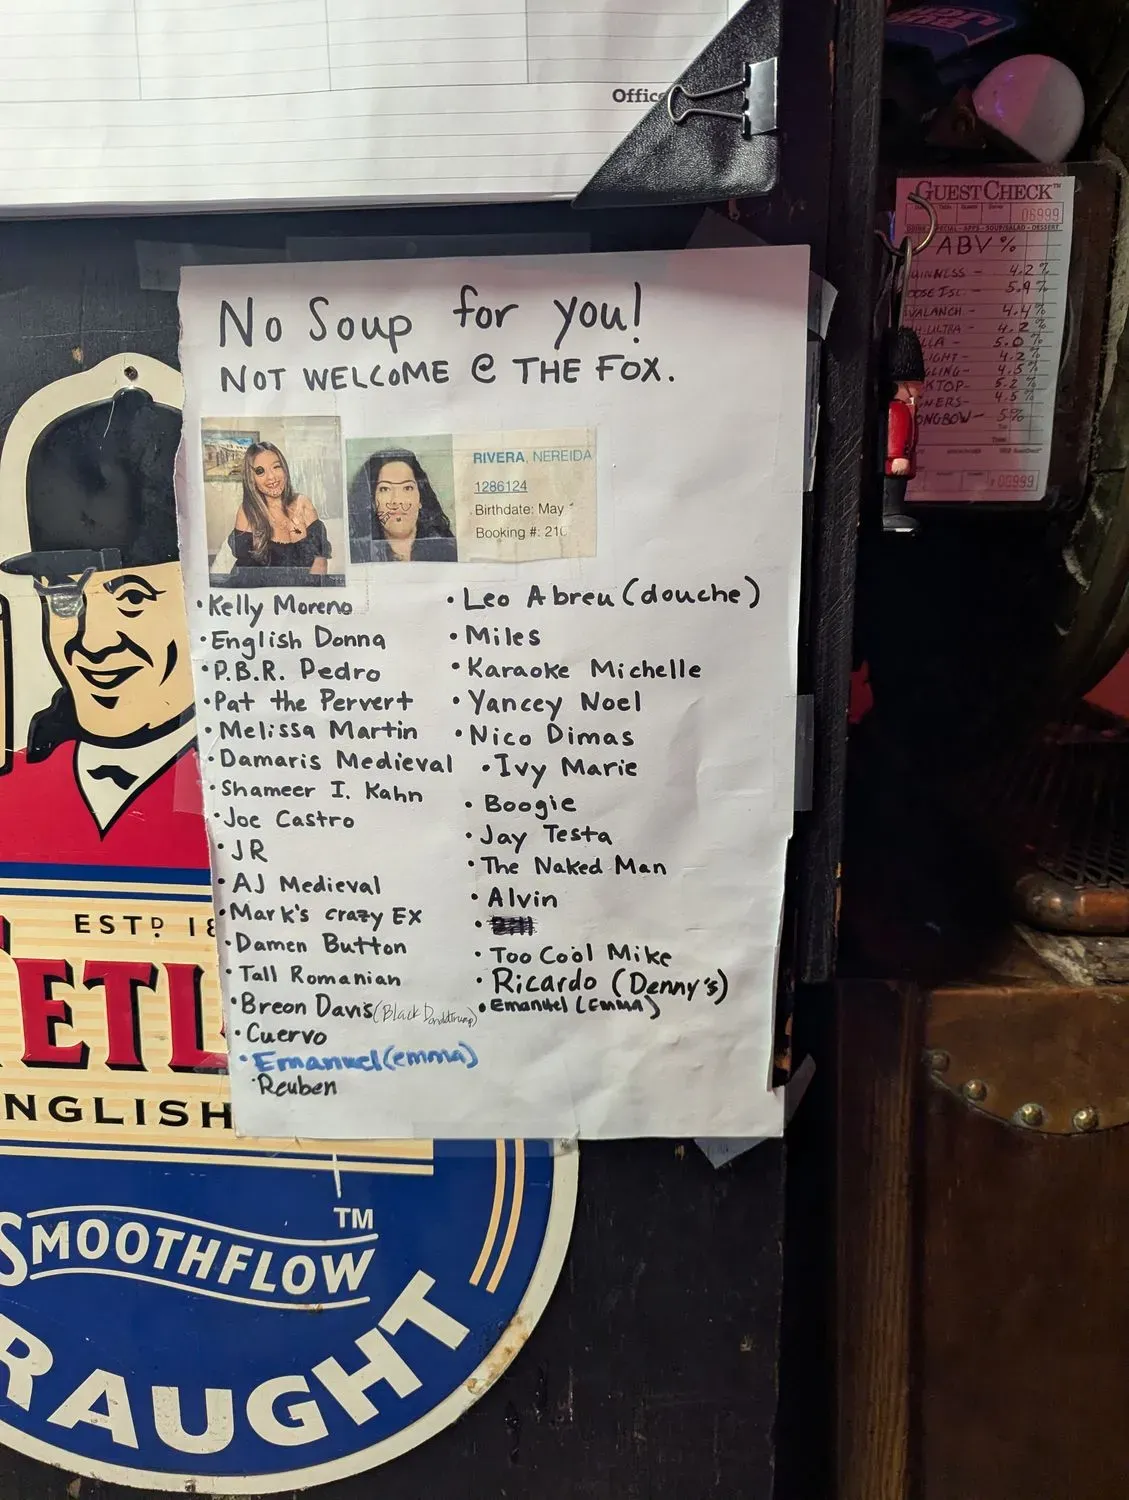 Office
No Soup for you!
NOT WELCOME @ THE FOX.
RIVERA, NEREIDA
1286124
Birthdate: May
Booking #: 210
• Kelly Moreno
• English Donna
• P.B.R. Pedro
• Pat the Pervert
• Melissa Martin
• Damaris Medieval
• Shameer I. Kahn
• Joe Castro
• JR
• AJ Medieval
• Mark's crazy EX
• Damen Button
• Tall Romanian
• Breon Davis (Black Donaldtrump)
• Cuervo
• Emanuel (emma)
• Reuben
• Leo Abreu (douche)
• Miles
• Karaoke Michelle
• Yancey Noel
• Nico Dimas
• Ivy Marie
• Boogie
• Jay Testa
• The Naked Man
• Alvin
• Too Cool Mike
• Ricardo (Denny's)
• Emanuel (EMMA)
GUEST CHECK™
06999
ABV %
UINNESS - 4.2%
OOSE ISL - 5.9%
VALANCH - 4.4%
H ULTRA - 4.2%
LLA - 5.0%
LIGHT - 4.2%
GLING - 4.5%
KTOP - 5.2
NERS - 4.5%
ONGBOW - 5%
06999
ESTD 18
ETL
NGLISH
SMOOTHFLOW
TM
RAUGHT